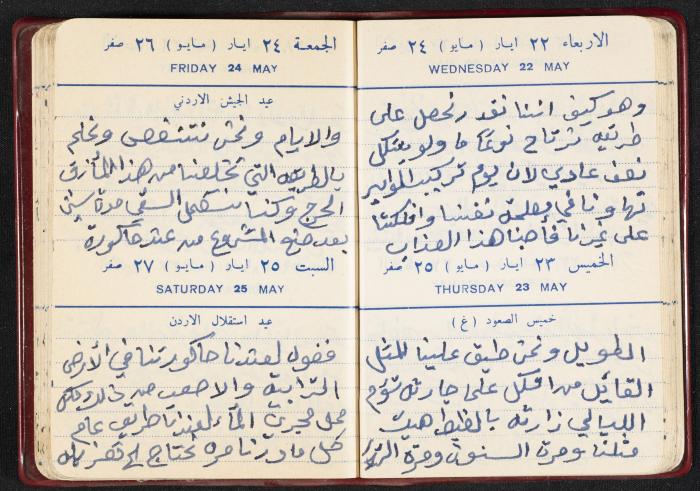 الاربعاء ٢٢ ايار ( مايو ) ٢٤ صفر
WEDNESDAY 22 MAY
وهو كيف اننا نقدر نحصل على
طريقه نرتاح نوعا ما ولو بشكل
نصف عادي لان يوم تركيب المواسير
على غيرنا فاجئنا هذا العذاب
الخميس ٢٣ ايار ( مايو ) ٢٥ صفر
THURSDAY 23 MAY
خميس الصعود (غ)
الطويل ونحن طبق علينا المثل
القائل من اتكل على جارته
الليالي زارته بالضبط هيك
مثلنا ومرة السنون ومرة
الجمعة ٢٤ ايار ( مايو ) ٢٦ صفر
FRIDAY 24 MAY
عيد الجيش الاردني
والايام ونحن ونحلم
بالطريقه التي تخلصنا من هذا المأزق
الحرج وكنا السقي مرة
بعد المشروع من عند حاكورة
السبت ٢٥ ايار ( مايو ) ٢٧ صفر
SATURDAY 25 MAY
عيد استقلال الاردن
لعندنا حاكورتنا في الأرض
الترابية والاصعب من ذلك
محل مجرى الماء لعندنا طريق عام
كل ما درنا مره نحتاج الى